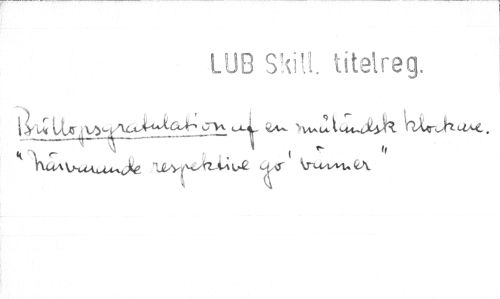 LUB Skill. titelreg.
Bröllopsgratulation af en småländsk klockare.
"Närvarande respektive go' vänner"